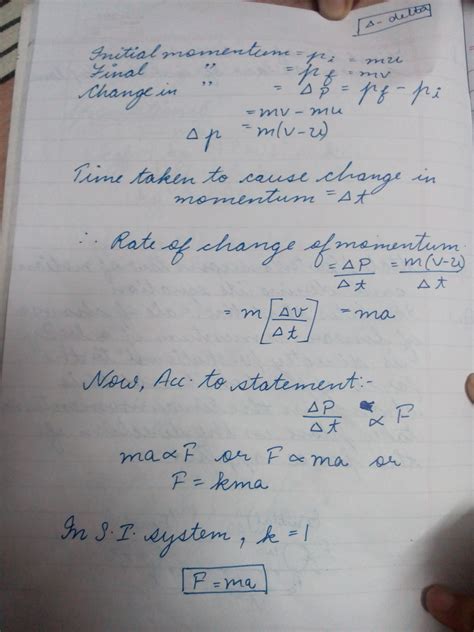 Δ - delta
Initial momentum = pi = mu
Final " = pf = mv
Change in " = ΔP = pf - pi
= mv - mu
Δp = m(v-u)
Time taken to cause change in
momentum = Δt
∴ Rate of change of momentum
= ΔP/Δt = m(v-u)/Δt
= m[Δv/Δt] = ma
Now, Acc. to statement:-
ΔP/Δt ∝ F
ma ∝ F or F ∝ ma or
F = kma
In S.I. system, k = 1
F = ma